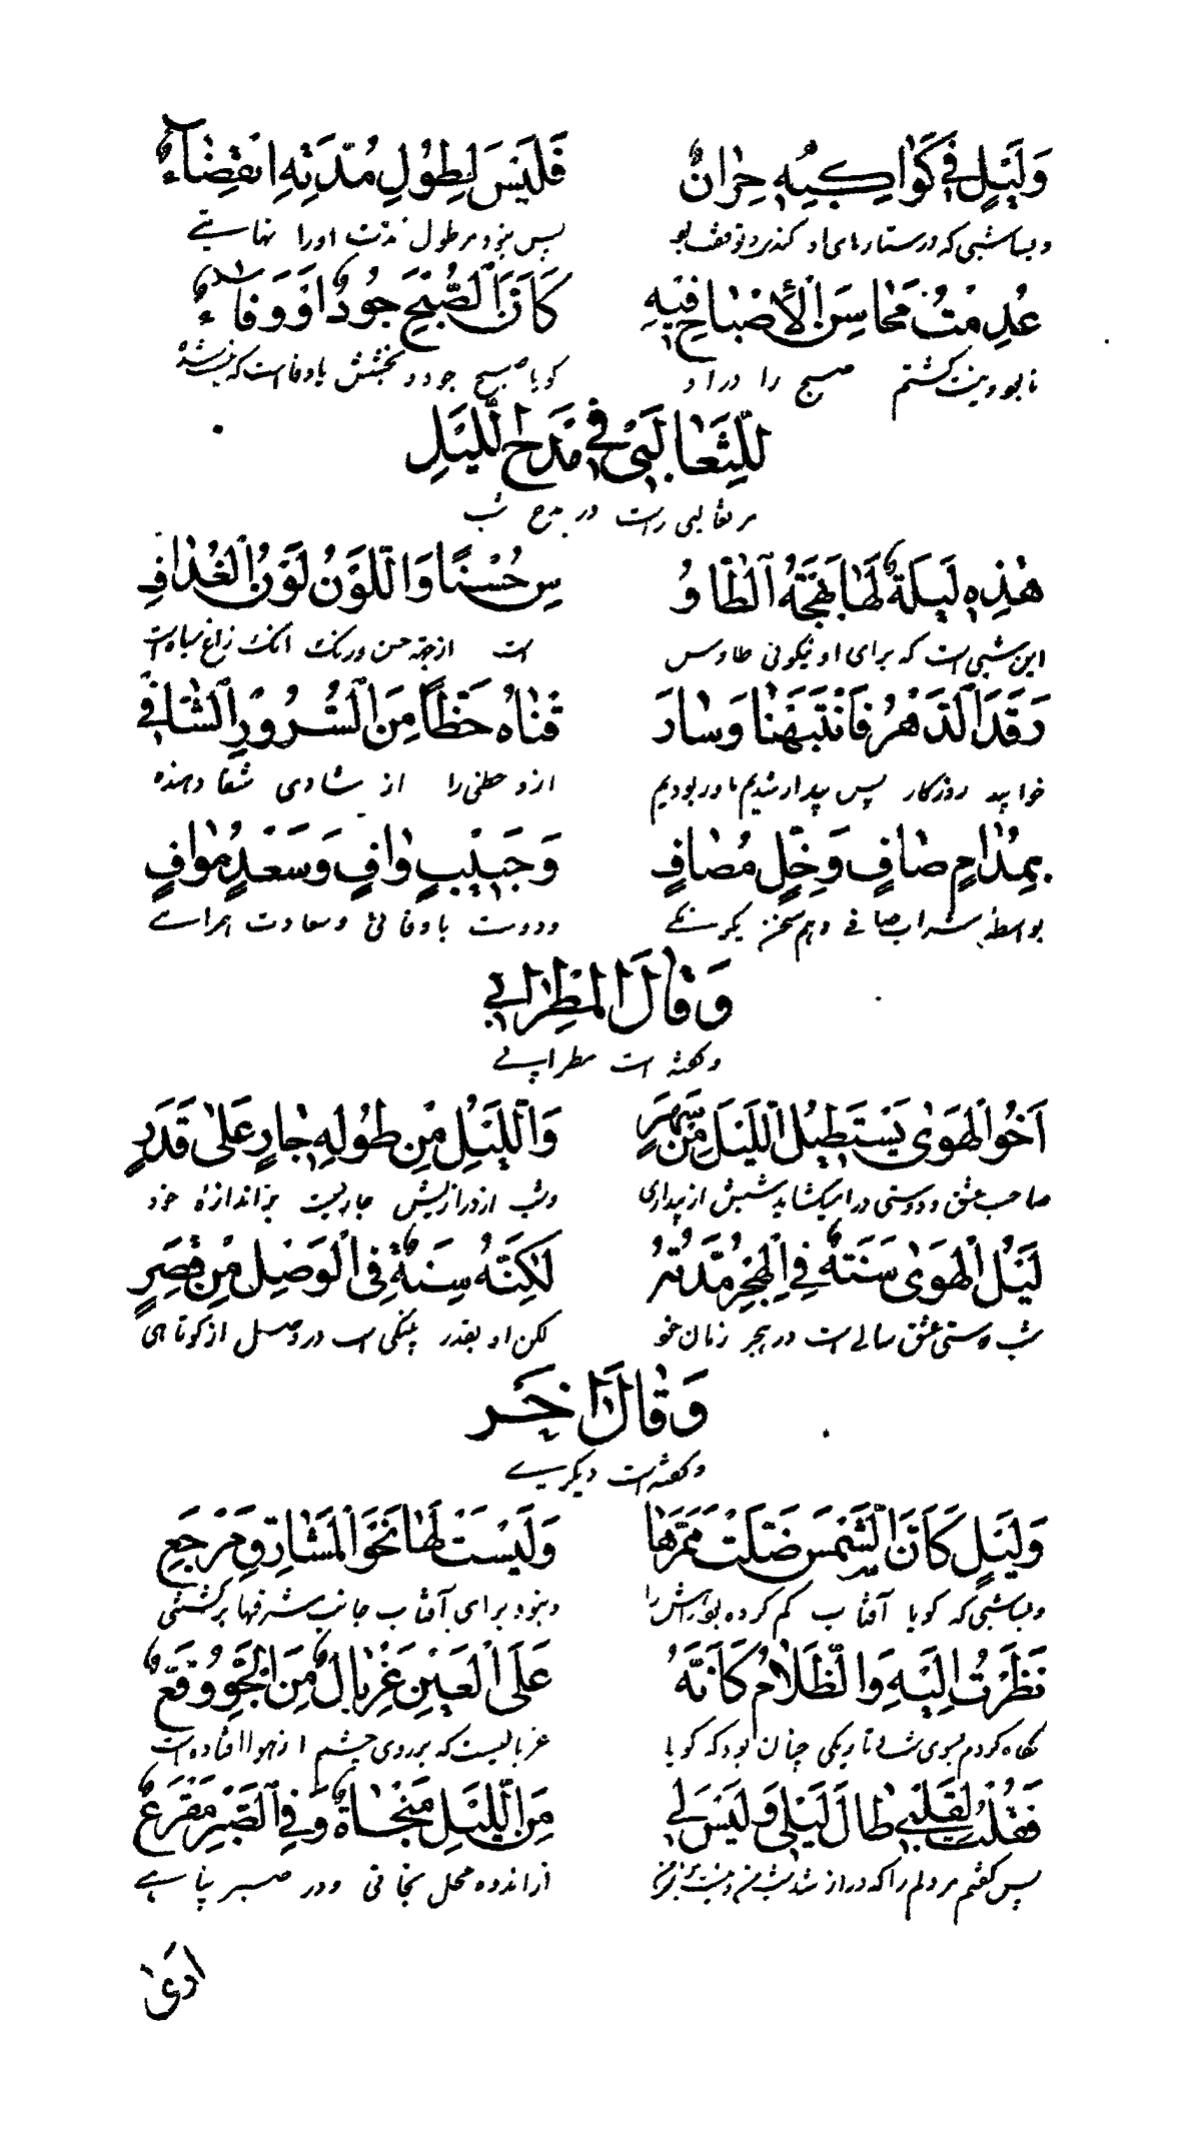 وَلَيْلٍ فِي كَوَاكِبِهِ حِرَانٌ فَلَيْسَ لِطُولِ مُدَّتِهِ انْقِضَاءٌ
وبسا شبی که در ستارهای او کندی و توقف بود پس نبود مر طول مدت اورا نهایتی
عُدِمْتُ مَحَاسِنَ الْأَصْبَاحِ فِيهِ كَأَنَّ الصُّبْحَ جُودٌ اَوْ وَفَاءٌ
نابود کشتم صبح را در او کویا صبح جود و بخشش یا وفا است که
لِلثَّعَالِبِىِّ فِي مَدْحِ اللَّيْلِ
مر ثعالبی راست در مدح شب
هٰذِهِ لَيْلَةٌ لَهَا بَهْجَةُ الطَّاوُ سِ حُسْنًا وَاللَّوْنُ لَوْنُ الْغُدَافِ
این شبی است که برای او نیکوئی طاوس است از جهة حسن ورنک انک رنک زاغ سیاه است
رَقَدَ الدَّهْرُ فَانْتَبَهْنَا وَسَارَ قْنَاهُ حَظًّا مِنَ السُّرُورِ الشَّافِي
خوابید روزکار پس بیدار شدیم ما وربودیم ازو حظی را از شادی شفا دهنده
بِمُدَامٍ صَافٍ وَخِلٍّ مُصَافٍ وَحَبِيْبٍ وَافٍ وَسَعْدٍ مُوَافٍ
بواسطهٔ شراب صافی وهم سخن یکرنکی ودوست باوفائی وسعادت همراهی
وَقَالَ الْمِطْرَانِي
وکفته است مطرانی
اَخُو الْهَوٰى يَسْتَطِيلُ اللَّيْلَ مِنْ سَهَرٍ وَاللَّيْلُ مِنْ طُولِهِ جَارٍ عَلٰى قَدَرٍ
صاحب عشق ودوستی دراز میکشاید شبش از بیداری وشب از درازیش جاریست بر اندازهٔ خود
لَيْلُ الْهَوٰى سَنَةٌ فِي الْهَجْرِ مُدَّتُهُ لٰكِنَّهُ سِنَةٌ فِي الْوَصْلِ مِنْ قِصَرٍ
شب دوستی عشق سالی است در هجر زمان خود لکن او بقدر پینکی است در وصل از کوتاهی
وَقَالَ اٰخَر
وکفته است دیکری
وَلَيْلٍ كَأَنَّ الشَّمْسَ ضَلَّتْ مَمَرَّهَا وَلَيْسَتْ لَهَا نَحْوَ الْمَشَارِقِ مَرْجَعِ
وبسا شبی که کویا آفتاب کم کرده بود راهش را ونبود برای آفتاب جانب مشرقها برکشتنی
نَظَرْتُ اِلَيْهِ وَالظَّلَامُ كَأَنَّهُ عَلَى الْعَيْنِ غِرْبَالٌ مِنَ الْجَوِّ وُقَّعٌ
نکاه کردم بسوی شب تاریکی چنان بود که کویا غربالیست که بر روی چشم از هوا افتاده است
فَقُلْتُ لِقَلْبِي طَالَ لَيْلِي وَلَيْسَ لِي مِنَ اللَّيْلِ مَنْجَاةٌ وَفِي الصَّبْرِ مَفْزَعٌ
پس کفتم مر دلم را که دراز شد شب من ونیست از اندوه محل نجاتی ودر صبر پناهی
ارى